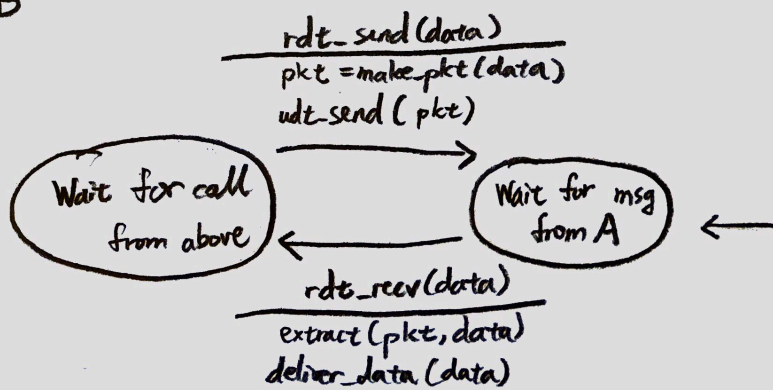 B
rdt_send(data)
pkt = make_pkt(data)
udt_send(pkt)
Wait for call
from above
Wait for msg
from A
rdt_rcev(data)
extract(pkt, data)
deliver_data(data)